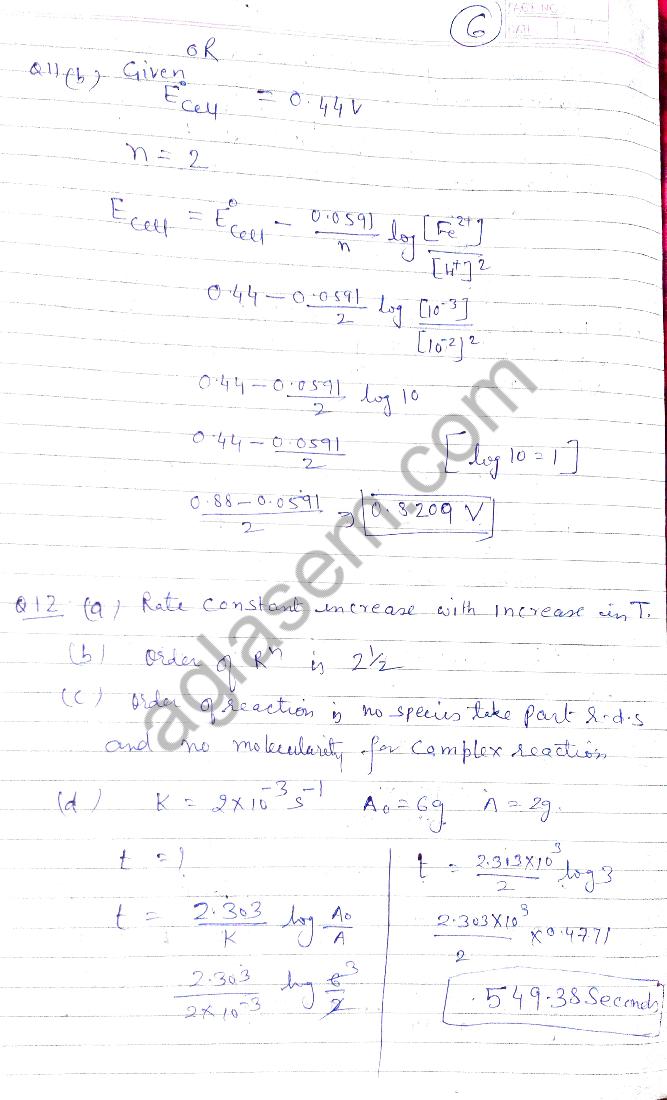 6
PAGE NO.
DATE
OR
Q11(b) Given
E°cell = 0.44V
n = 2
Ecell = E°cell - 0.0591/n log [Fe²⁺]/[H⁺]²
0.44 - 0.0591/2 log [10⁻³]/[10⁻²]²
0.44 - 0.0591/2 log 10
0.44 - 0.0591/2 [log 10 = 1]
(0.88 - 0.0591)/2 ⇒ 0.8209 V
Q12 (a) Rate constant increase with increase in T.
(b) order of Rⁿ is 2½
(c) order of reaction is no species take part r.d.s
and no molecularity for complex reaction
(d) K = 2×10⁻³ s⁻¹ A₀ = 6g A = 2g.
t = ?
t = 2.303/K log A₀/A
2.303/2×10⁻³ log 6/2 3
t = 2.313×10³/2 log 3
2.303×10³/2 × 0.4771
549.38 Seconds
aglasem.com